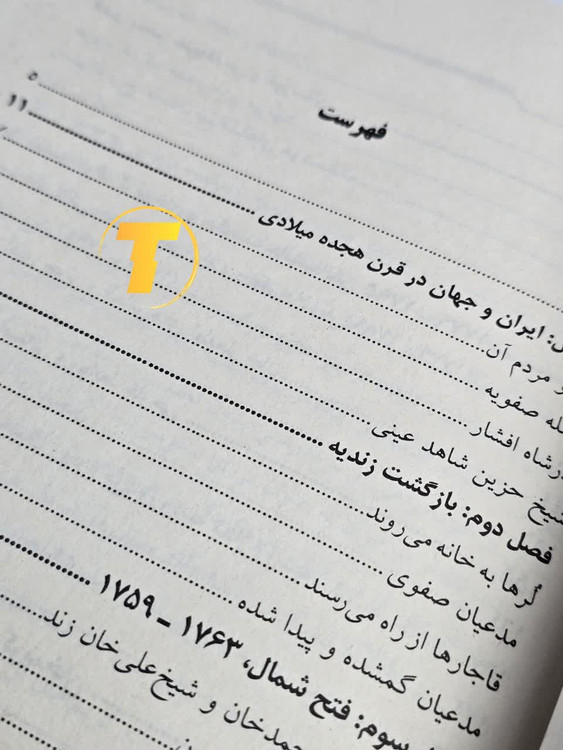 فهرست
۵
ایران و جهان در قرن هجده میلادی ۱۱
و مردم آن
صفویه
افشار
شیخ حزین شاهد عینی
فصل دوم: بازگشت زندیه
لُرها به خانه می‌روند
مدعیان صفوی
قاجارها از راه می‌رسند
مدعیان گمشده و پیدا شده
سوم: فتح شمال، ۱۷۶۳ ـ ۱۷۵۹
و شیخ‌علی‌خان زند
T